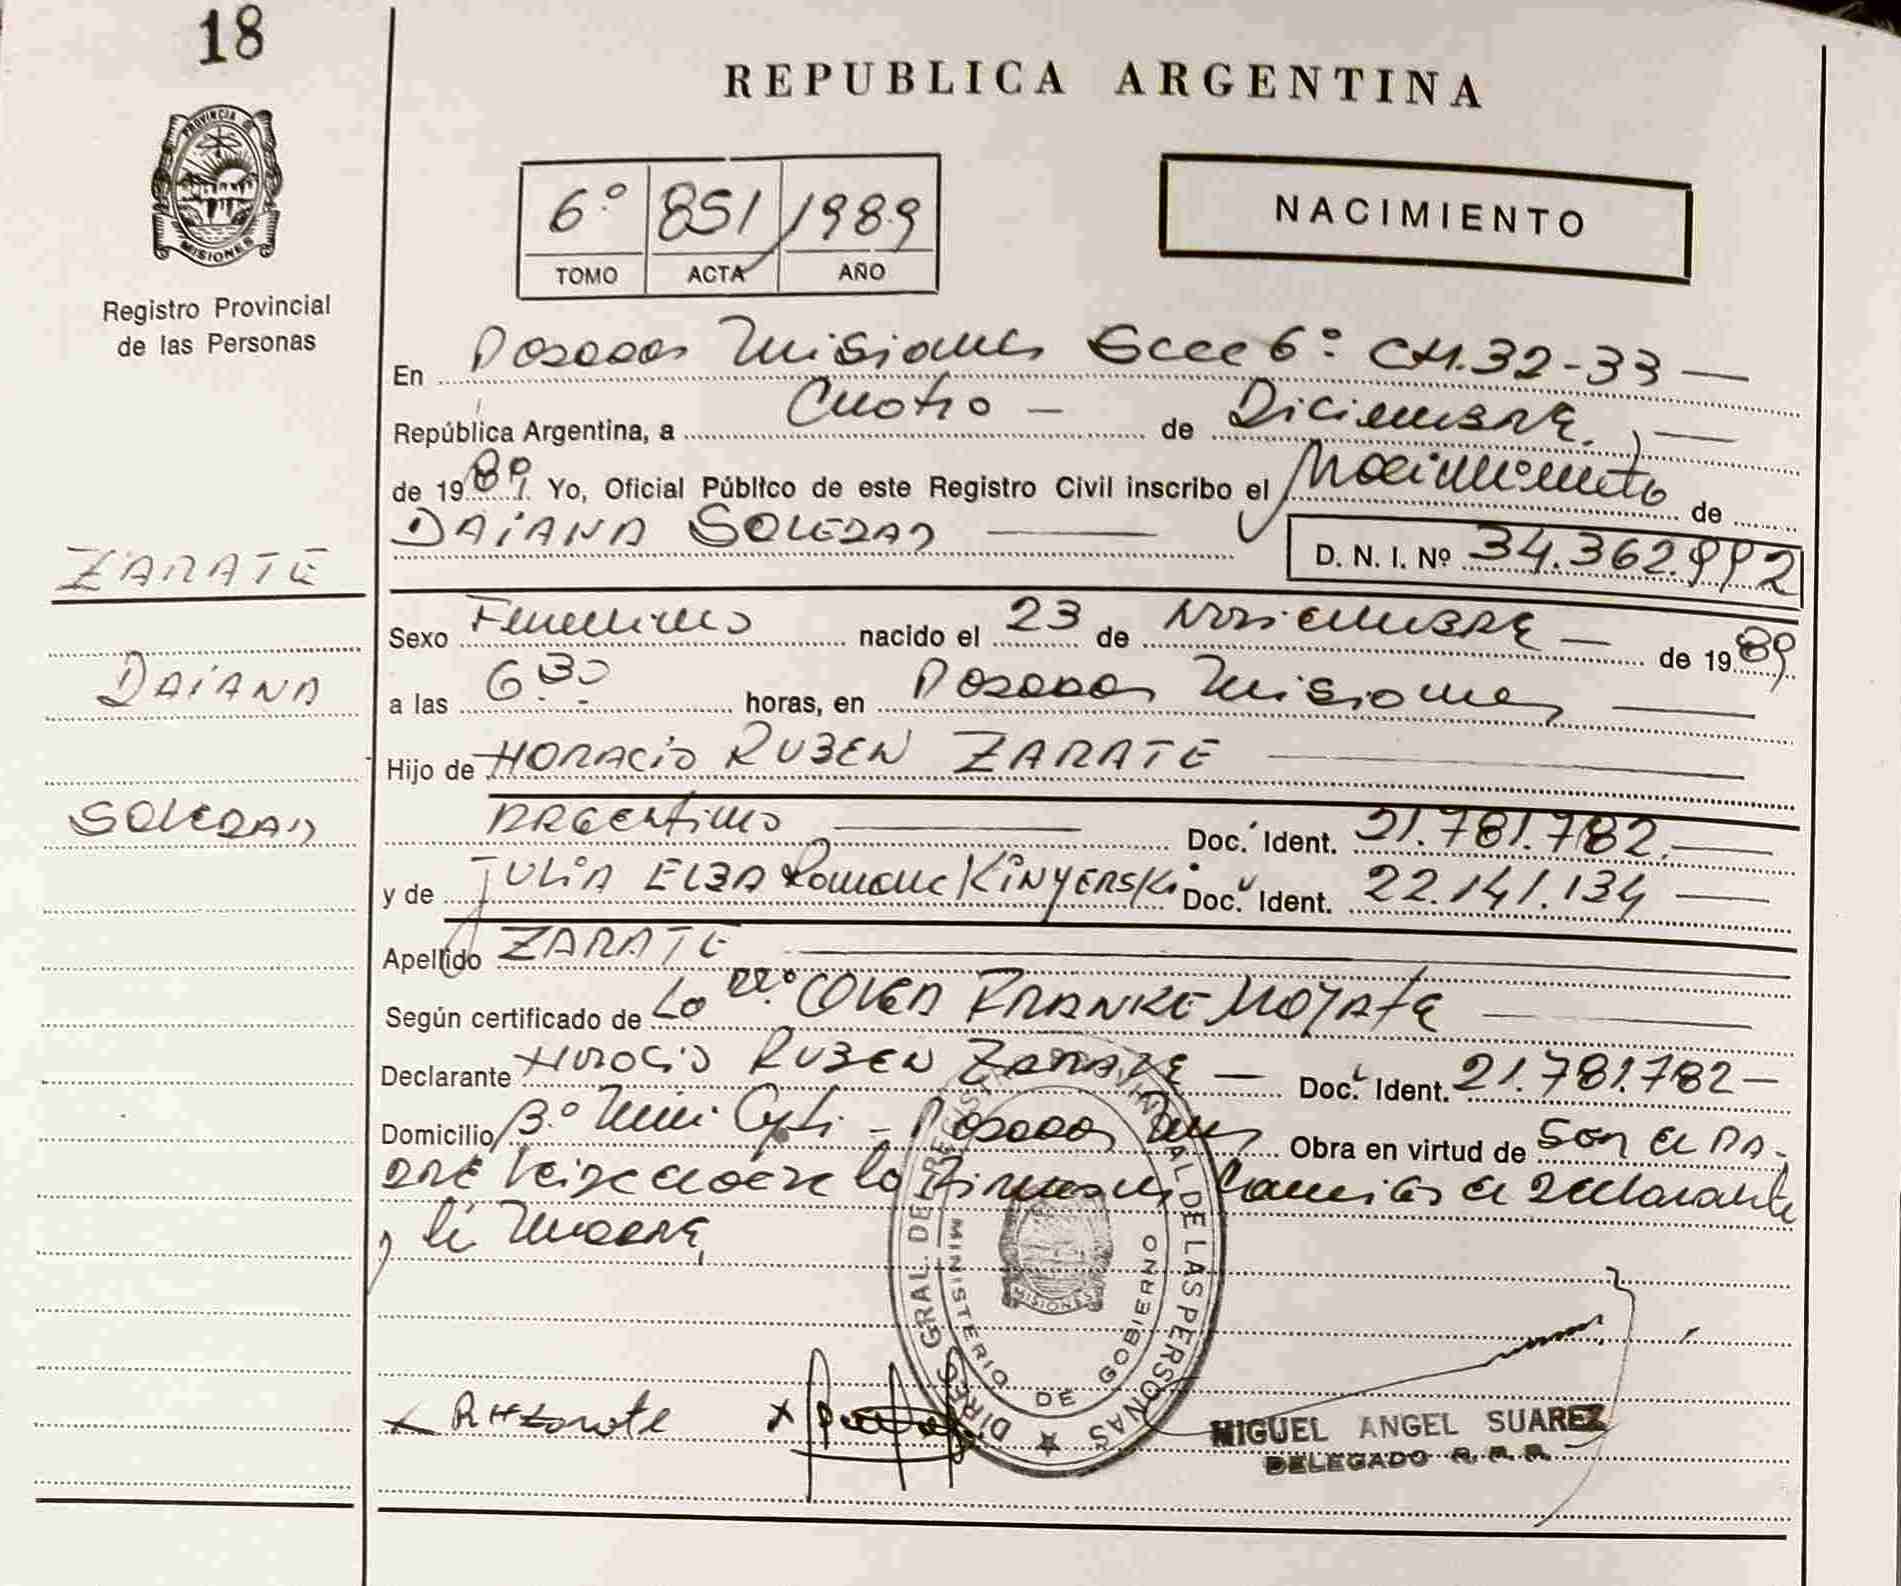 18
REPUBLICA ARGENTINA
PROVINCIA DE
MISIONES
Registro Provincial
de las Personas
6º 851 1989
TOMO ACTA AÑO
NACIMIENTO
En Posadas Misiones Secc 6º CH.32-33
República Argentina, a Cuatro de Diciembre
de 1989 Yo, Oficial Público de este Registro Civil inscribo el Nacimiento de
DAIANA SOLEDAD
D. N. I. Nº 34.362.992
ZARATE
DAIANA
SOLEDAD
Sexo Femenino nacido el 23 de Noviembre de 1989
a las 6.30 horas, en Posadas Misiones
Hijo de HORACIO RUBEN ZARATE
ARGENTINO Doc. Ident. 21.781.782.
y de JULIA ELBA Romana KINYERSKI Doc. Ident. 22.141.134
Apellido ZARATE
Según certificado de La OLGA FRANKE
Declarante HORACIO RUBEN ZARATE Doc. Ident. 21.781.782
Domicilio Posadas Obra en virtud de Son el PA-
DRE el declarante
y la Madre
DIREC. GRAL. DE REGISTRO PROVINCIAL DE LAS PERSONAS
MINISTERIO DE GOBIERNO
MISIONES
x RHZarate x
MIGUEL ANGEL SUAREZ
DELEGADO R.P.P.